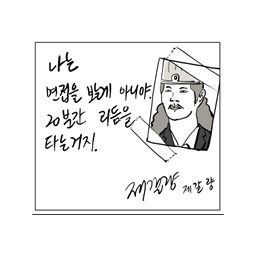 나는
면접을 밟는게 아니야.
20분간 리듬을
타는거지.
제갈량 제갈량